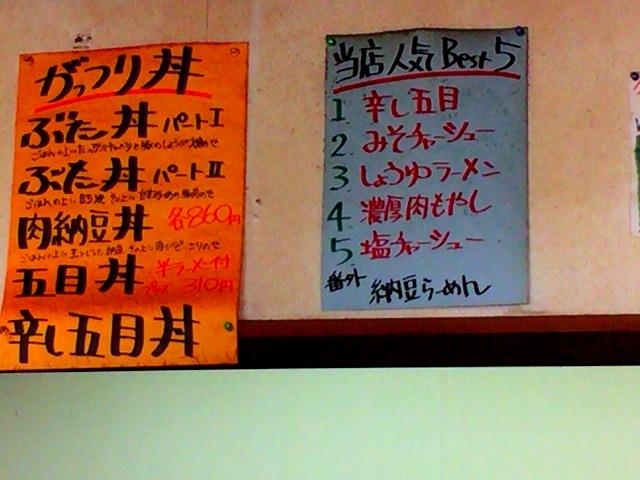 がっつり丼
ぶた丼 パートI
ぶた丼 パートII
肉納豆丼 各860円
五目丼 半ラーメン付
310円
辛し五目丼
当店人気 Best 5
1 辛し五目
2 みそチャーシュー
3 しょうゆラーメン
4 濃厚肉もやし
5 塩チャーシュー
番外 納豆らーめん